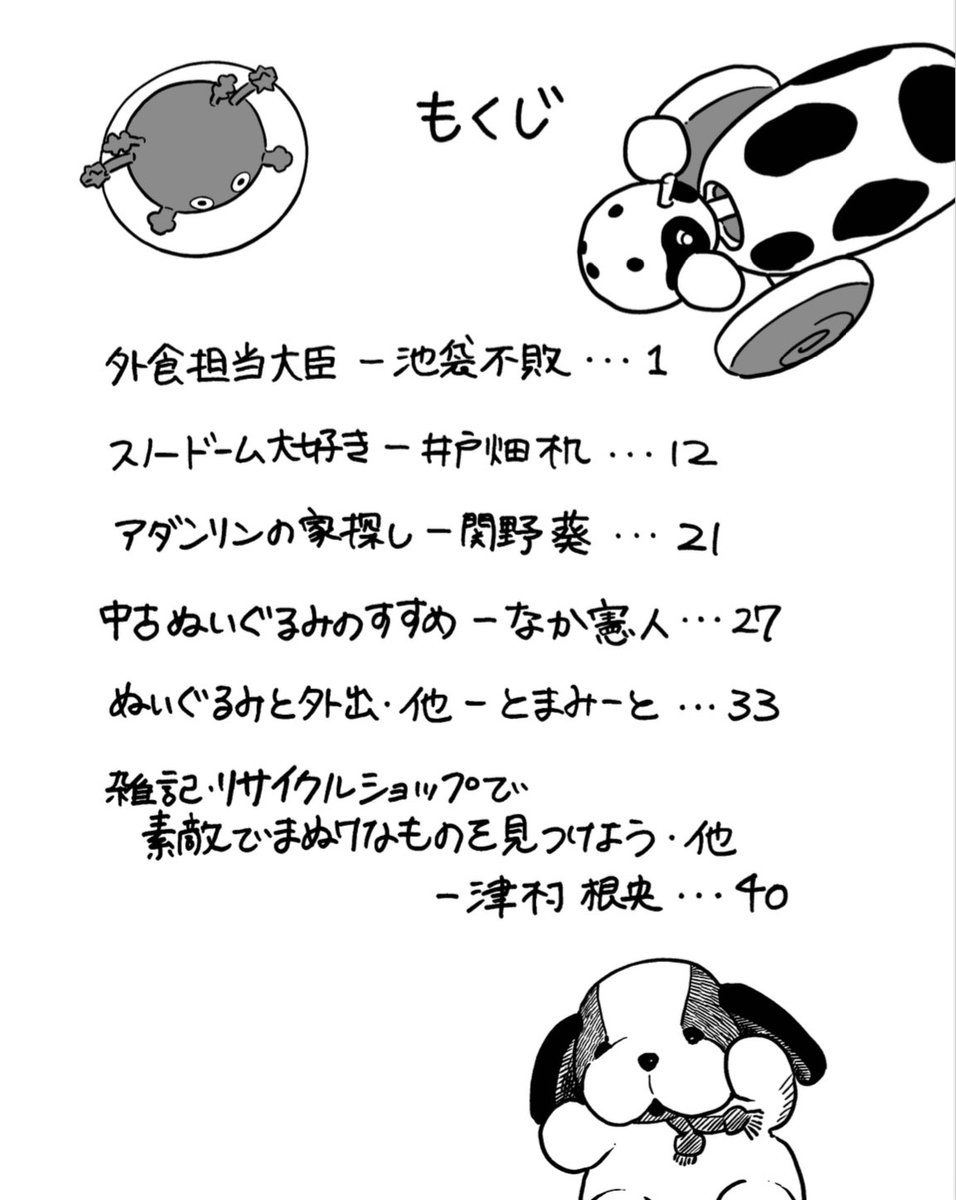 もくじ
外食担当大臣 ー 池袋不敗 ・・・ 1
スノードーム大好き ー 井戸畑机 ・・・ 12
アダンリンの家探し ー 関野葵 ・・・ 21
中古ぬいぐるみのすすめ ー なか憲人 ・・・ 27
ぬいぐるみと外出・他 ー とまみーと ・・・ 33
雑記・リサイクルショップで
素敵でまぬけなものを見つけよう・他
ー 津村根央 ・・・ 40